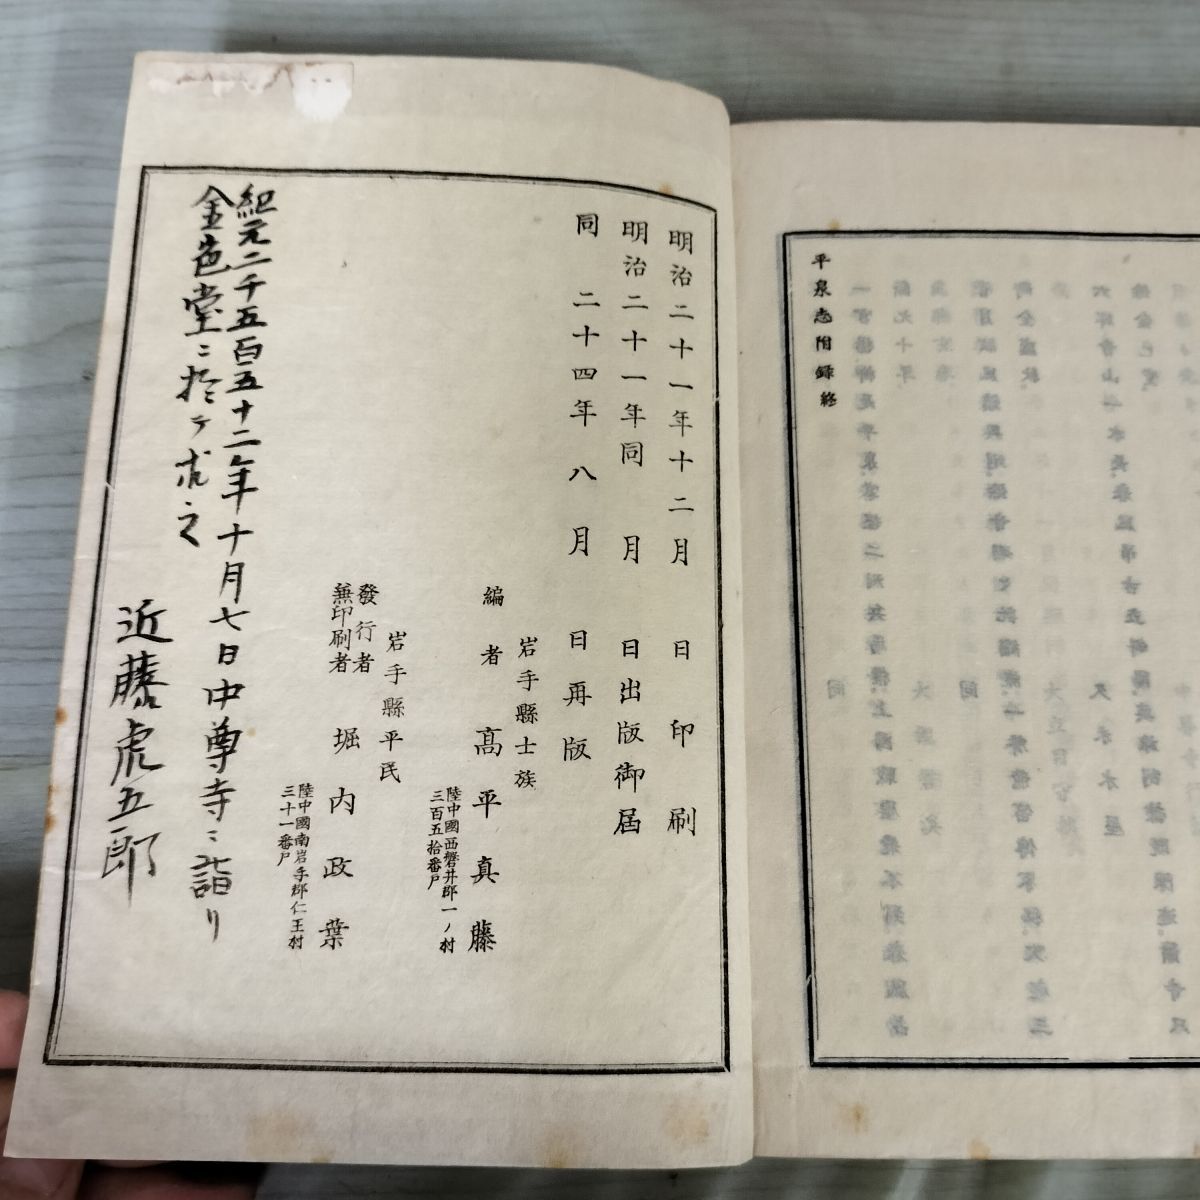 平泉志附録終
明治二十一年十二月　日印刷
明治二十一年同　月　日出版御届
同　二十四年　八　月　日再版
岩手縣士族
編者　髙平真藤
陸中國西磐井郡一ノ村
三百五拾番戸
岩手縣平民
發行者
兼印刷者
堀内政葉
陸中國南岩手郡仁王村
三十一番戸
紀元二千五百五十二年十月七日中尊寺ニ詣リ
金色堂ニ於テ求之
近藤虎五郎